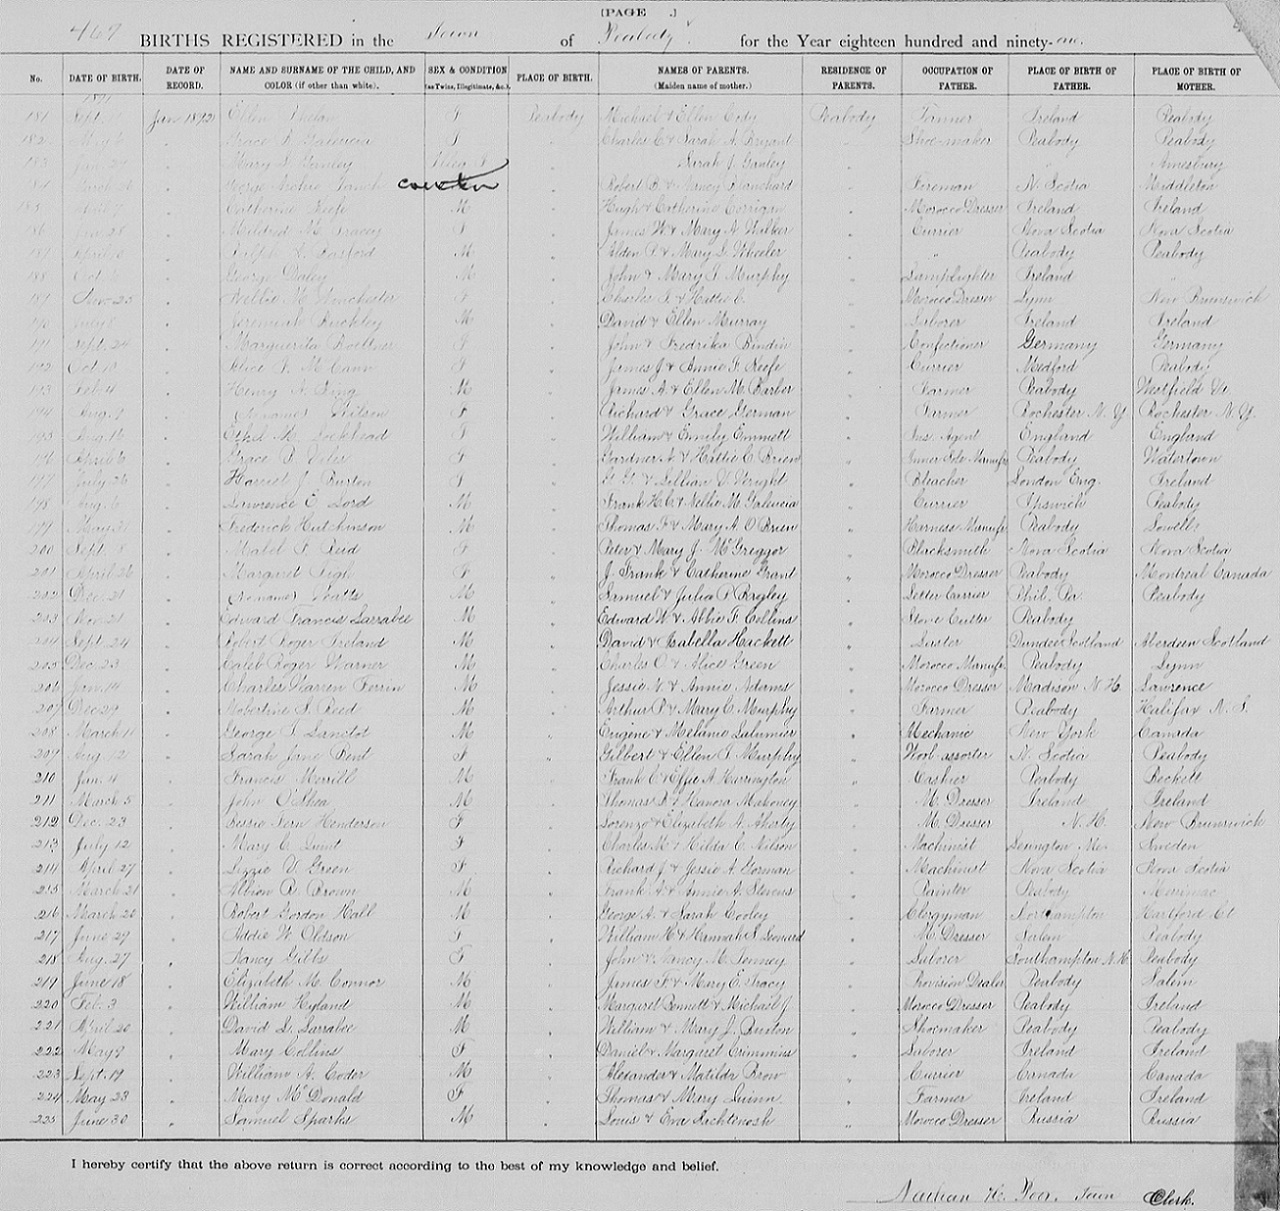 [PAGE .]
469 BIRTHS REGISTERED in the Town of Peabody for the Year eighteen hundred and ninety-one.
No. DATE OF BIRTH. DATE OF RECORD. NAME AND SURNAME OF THE CHILD, AND COLOR (if other than white). SEX & CONDITION (as Twins, Illegitimate, &c.). PLACE OF BIRTH. NAMES OF PARENTS. (Maiden name of mother.) RESIDENCE OF PARENTS. OCCUPATION OF FATHER. PLACE OF BIRTH OF FATHER. PLACE OF BIRTH OF MOTHER.
1891
181 Sept. Jan 1892 Ellen Phelan F Peabody Michael & Ellen Cody Peabody Farmer Ireland Peabody
182 May 6 Grace Galeucia F Charles E & Sarah A Bryant Shoe-maker Peabody Peabody
183 Jan. Mary Ganley Illeg F Sarah J Ganley " Amesbury
184 March 26 George Archie Robert & Nancy Blanchard Foreman N. Scotia Middleton
185 Catharine Keefe M Hugh & Catherine Corrigan Morocco Dresser Ireland Ireland
186 28 Mildred M. Tracey F James W & Mary A Wilber Currier Nova Scotia Nova Scotia
187 Ralph M Alden P. & Mary Wheeler " Peabody Peabody
188 Oct 6 George Daley M John & Mary J Murphy Lamplighter Ireland "
189 Nov. 25 Nellie M Winchester F Charles & Hattie E. Morocco Dresser Lynn New Brunswick
190 July 8 Jeremiah Buckley M David & Ellen Murray Laborer Ireland Ireland
191 Sept. 24 Marguerita Boettner F John & Fredrika Bindin Confectioner Germany Germany
192 Oct 10 Alice F. McCann F James J & Annie F. Keefe Currier Medford Peabody
193 Feb. 4 Henry A. King M James A. & Ellen M. Barber Farmer Peabody Westfield
194 Aug. 9 (No name) Wilson F Richard & Grace German Farmer Rochester N. Y. Rochester N. Y.
195 Aug. 16 Ethel M. Lockhead F William & Emily Emmett Ins. Agent England England
196 April 6 Grace F Gardner A. & Hattie E Brien Inner Sole Manufr Peabody Watertown
197 July 26 Harriet J Burton F & Lillian V. Wright Bleacher London Eng. Ireland
198 Aug. 6 Lawrence E Lord M Frank H.C. & Nellie M. Galeucia Currier Ipswich Peabody
199 May 31 Frederick Hutchinson M Thomas F & Mary A. O'Brien Harness Manufr Peabody Lowell
200 Sept. 8 Mabel F. Reid F Peter & Mary J. McGreggor Blacksmith Nova Scotia Nova Scotia
201 April 26 Margaret F J. Frank & Catherine Grant Morocco Dresser Peabody Montreal Canada
202 Dec. 21 (No name) M Samuel & Julia P. Letter Carrier Phil. Pa. Peabody
203 Nov. 21 Edward Francis Larrabee M Edward W & Abbie F. Collins Stone Cutter Peabody
204 Sept. 24 Robert Roger Ireland M David & Isabella Hackett Dundee Scotland Aberdeen Scotland
205 Dec. 23 Caleb Roger Warner M Charles O & Alice Green Morocco Manufr. Peabody Lynn
206 Jan. 14 Charles Warren Ferrin M Jessie N. & Annie Adams Morocco Dresser Madison N. H. Lawrence
207 Dec 29 Robertine Reed M Arthur P. & Mary C. Murphy Farmer Peabody Halifax N. S.
208 March 11 George F. Lanctot M Eugene & Melanie Lalumier Mechanic New York Canada
209 Aug. 12 Sarah Jane Bent F Gilbert & Ellen J. Murphy Wool assorter N. Scotia Peabody
210 Jan. 4 Francis Merrill M Frank C & Effie A. Harrington Cashier Peabody Beckett
211 March 5 John O'Shea M Thomas & Hanora Mahoney M. Dresser Ireland Ireland
212 Dec. 23 Bessie Fern Henderson F Lorenzo & Elizabeth A. Aherty M. Dresser N. H. New Brunswick
213 July 12 Mary E Quint F Charles M. & Hilda C. Nilson Machinist Lexington Me. Sweden
214 April 27 Lizzie V. Green F Richard J. & Jessie A. Gorman Machinist Nova Scotia Nova Scotia
215 March 21 Albion R. Brown M Frank A & Annie A. Stevens Painter Peabody Merrimac
216 March 20 Robert Gordon Hall M George A. & Sarah Cooley Clergyman Northampton Hartford Ct
217 June 29 Addie W. Oldson F William H. & Hannah S. Leonard M. Dresser Salem Peabody
218 Aug. 27 Nancy Gibbs F John & Nancy M. Penney Laborer Southampton N. H. Peabody
219 June 18 Elizabeth M. Connor M James F. & Mary E. Tracy Provision Dealer Peabody Salem
220 Feb. 3 William Hyland M Margaret Bennett & Michael J. Morocco Dresser Peabody Ireland
221 April 20 David L. Larrabee M William & Mary J. Buxton Shoemaker Peabody Peabody
222 May 9 Mary Collins F Daniel & Margaret Crimmins Laborer Ireland Ireland
223 Sept. 19 William A. Coder M Alexander & Matilda Brow Currier Canada Canada
224 May 23 Mary McDonald F Thomas & Mary Quinn Farmer Ireland Ireland
225 June 30 Samuel Sparks M Louis & Eva Rachtenosh Morocco Dresser Russia Russia
I hereby certify that the above return is correct according to the best of my knowledge and belief.
Nathan H. Poor. Town Clerk.